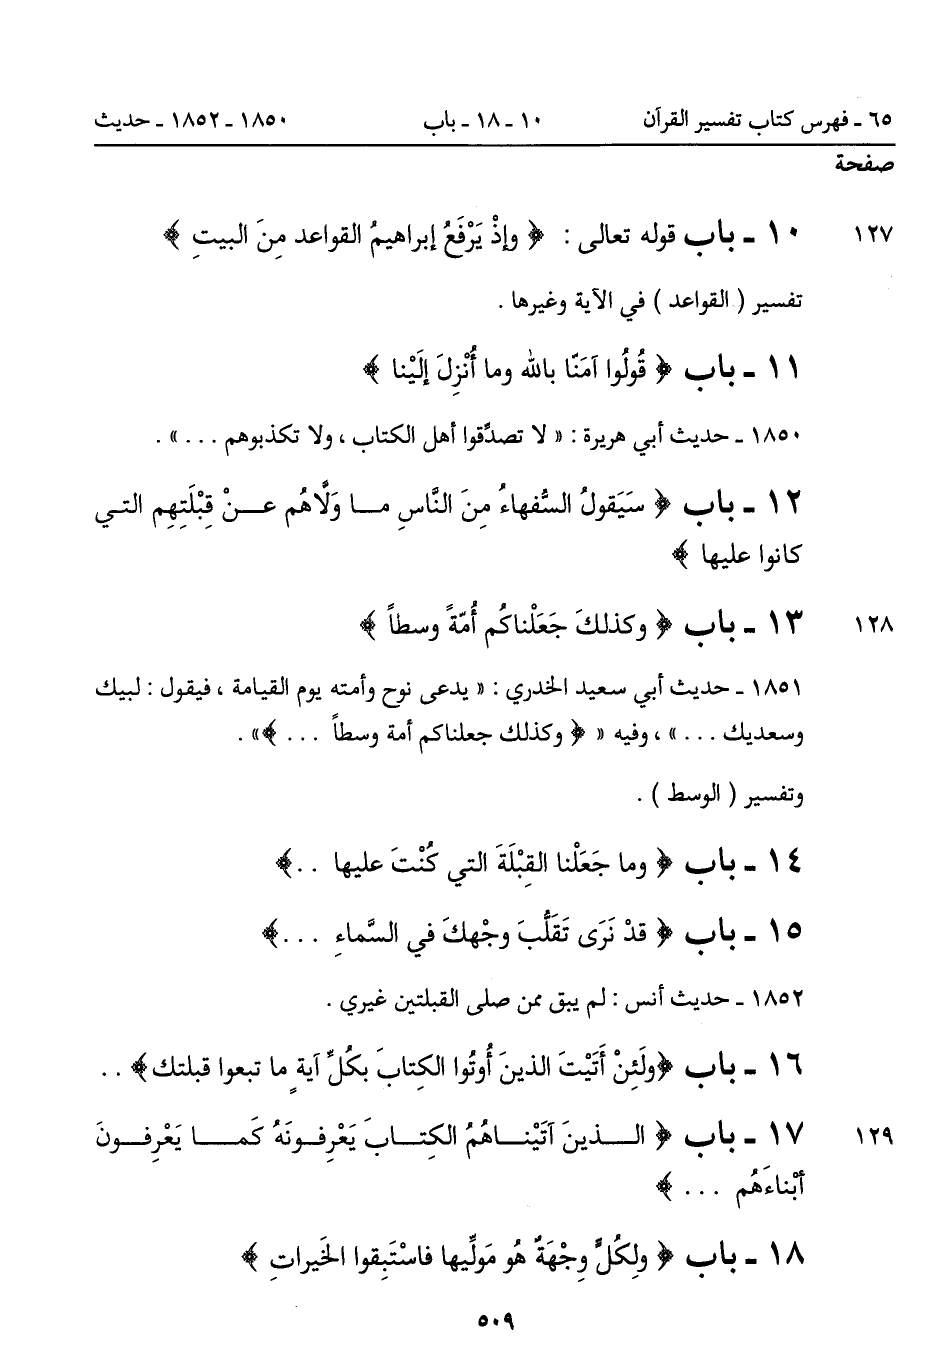 ٦٥ ـ فهرس كتاب تفسير القرآن ١٠ ـ ١٨ ـ باب ١٨٥٠ ـ ١٨٥٢ ـ حديث
صفحة
١٢٧ ١٠ ـ باب قوله تعالى : ﴿ وإذْ يَرْفَعُ إبراهيمُ القواعد مِنَ البيتِ ﴾
تفسير ( القواعد ) في الآية وغيرها .
١١ ـ باب ﴿ قُولُوا آمَنّا بالله وما أُنْزِلَ إلَيْنا ﴾
١٨٥٠ ـ حديث أبي هريرة : « لا تصدِّقوا أهل الكتاب ، ولا تكذبوهم ... » .
١٢ ـ باب ﴿ سَيَقولُ السُّفهاءُ مِنَ النَّاسِ مـا وَلَّاهُم عـنْ قِبْلَتِهِم التـي
كانوا عليها ﴾
١٢٨ ١٣ ـ باب ﴿ وكذلكَ جَعَلْناكُم أُمّةً وسطاً ﴾
١٨٥١ ـ حديث أبي سعيد الخدري : « يدعى نوح وأمته يوم القيامة ، فيقول : لبيك
وسعديك ... » ، وفيه « ﴿ وكذلك جعلناكم أمة وسطاً ... ﴾» .
وتفسير ( الوسط ) .
١٤ ـ باب ﴿ وما جَعَلْنا القِبْلَةَ التي كُنْتَ عليها ..﴾
١٥ ـ باب ﴿ قدْ نَرَى تَقَلُّبَ وجْهكَ في السَّماءِ ...﴾
١٨٥٢ ـ حديث أنس : لم يبق ممن صلى القبلتين غيري .
١٦ ـ باب ﴿ولَئِنْ أَتَيْتَ الذينَ أُوتُوا الكِتابَ بكُلِّ آيةٍ ما تبعوا قبلتك﴾ ..
١٢٩ ١٧ ـ باب ﴿ الـذينَ آتَيْنـاهُمُ الكِتـابَ يَعْرِفـونَهُ كَمـا يَعْرِفـونَ
أبْناءَهُم ... ﴾
١٨ ـ باب ﴿ ولِكُلٍّ وِجْهَةٌ هُو مَولِّيها فاسْتَبِقوا الخَيراتِ ﴾
٥٠٩